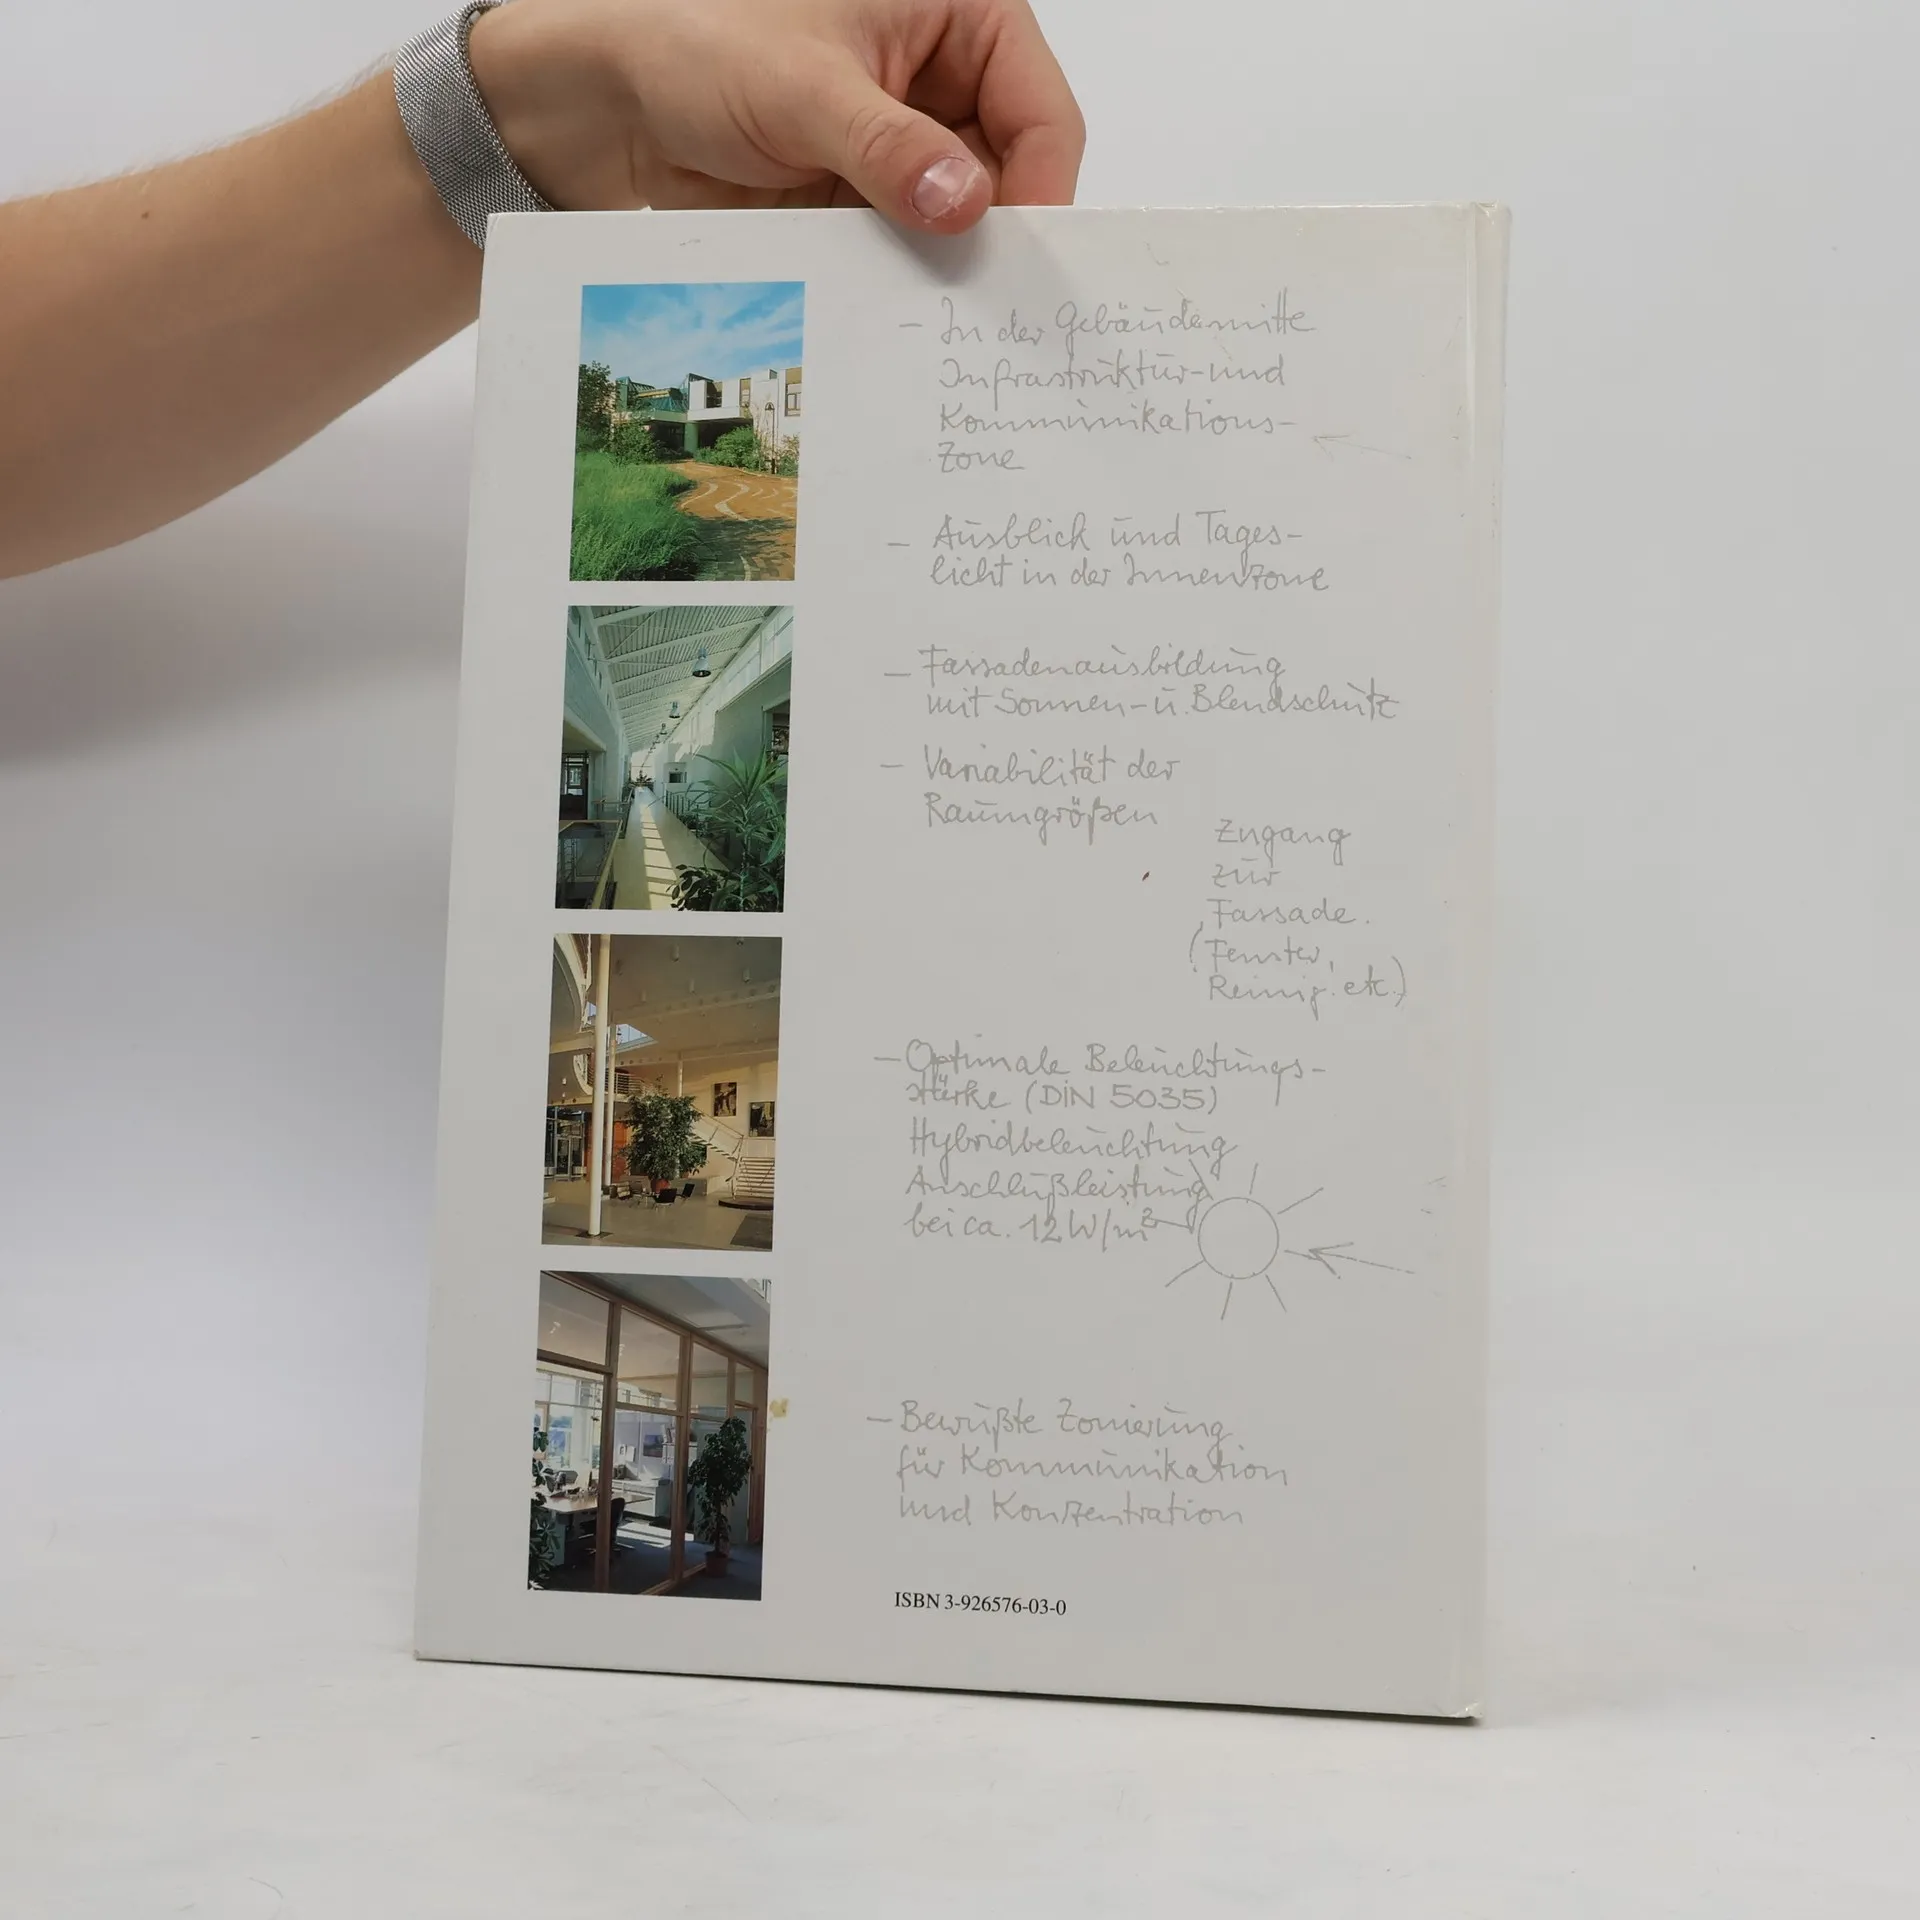 – In der Gebäudemitte
Infrastruktur- und
Kommunikations-
Zone
– Ausblick und Tages-
licht in der Innenzone
– Fassadenausbildung
mit Sonnen- u. Blendschutz
– Variabilität der
Raumgrößen
Zugang
zur
Fassade.
(Fenster,
Reinig. etc.)
– Optimale Beleuchtungs-
stärke (DIN 5035)
Hybridbeleuchtung
Anschlußleistung
bei ca. 12 W/m²
– Bewußte Zonierung
für Kommunikation
und Konzentration
ISBN 3-926576-03-0